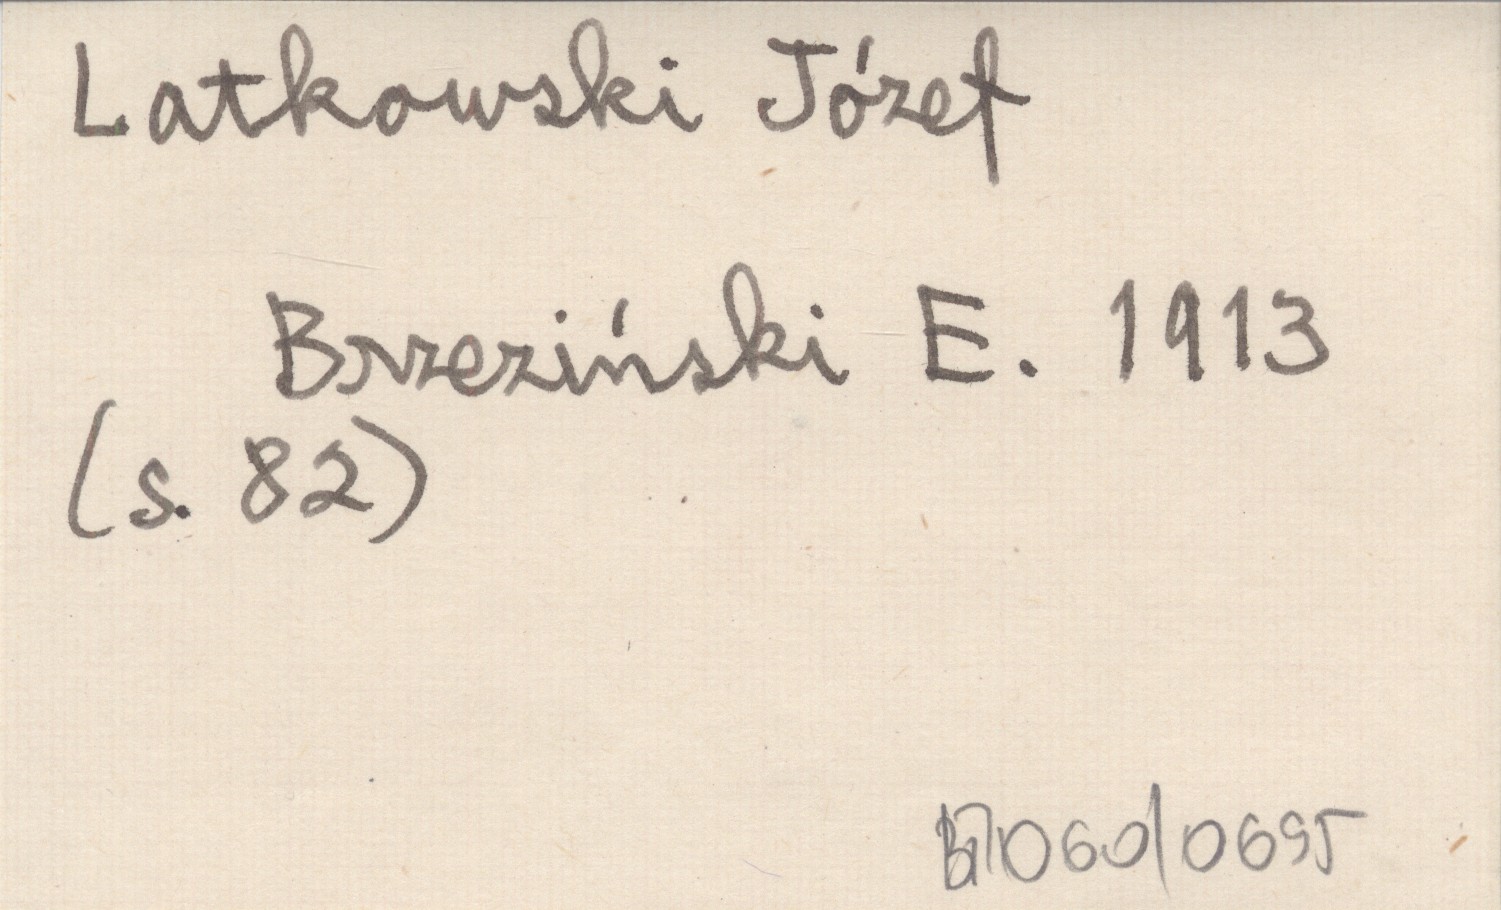 Latkowski Józef
Brzeziński E. 1913
(s. 82)
060/0695